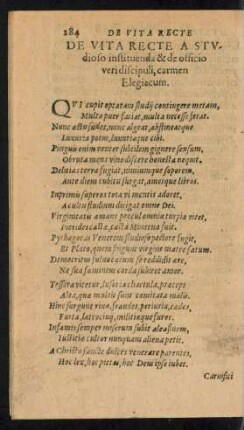 284 DE VITA RECTE
DE VITA RECTE A STV
dioso instituenda & de officio
veri discipuli, carmen
Elegiacum.
QVI cupit optatam studij contingere metam,
Multa puer faciat, multa necesse ferat.
Nunc æstu sudet, nunc algeat, abstineatque
Luxuria potus, luxuriaque cibi.
Pinguis enim venter subtilem gignere sensum,
Obruta mens vino discere honesta nequit.
Deliciis terra fugiat, nimiumque soporem,
Ante diem cubitu surgat, ametque libros.
Imprimis superos tota vi mentis adoret,
Ac cultu studium dirigat omne Dei.
Virginitatis amans procul omnia turpia vitet,
casta Minerua fuit.
Pythagoras Venerem studioso pectore fugit,
Et Plato, quem fingunt virgine matre satum.
Democritus
Ne sua fœminem corda
Tessera vitetur, lusoria chartula, præceps
Alea, quæ multis sunt comitata malis.
Hinc surgunt rixæ, fraudes, periuria, cædes,
Furta, latrocinij, militiæque furor.
Infamis semper miserum subit alea finem,
Iustitiæ cultor nunquam alienа petit.
A Christo sancte dulces venerare parentes,
Hoc lex, hoc pietas, hoc Deus ipse iubet.
Carnifici